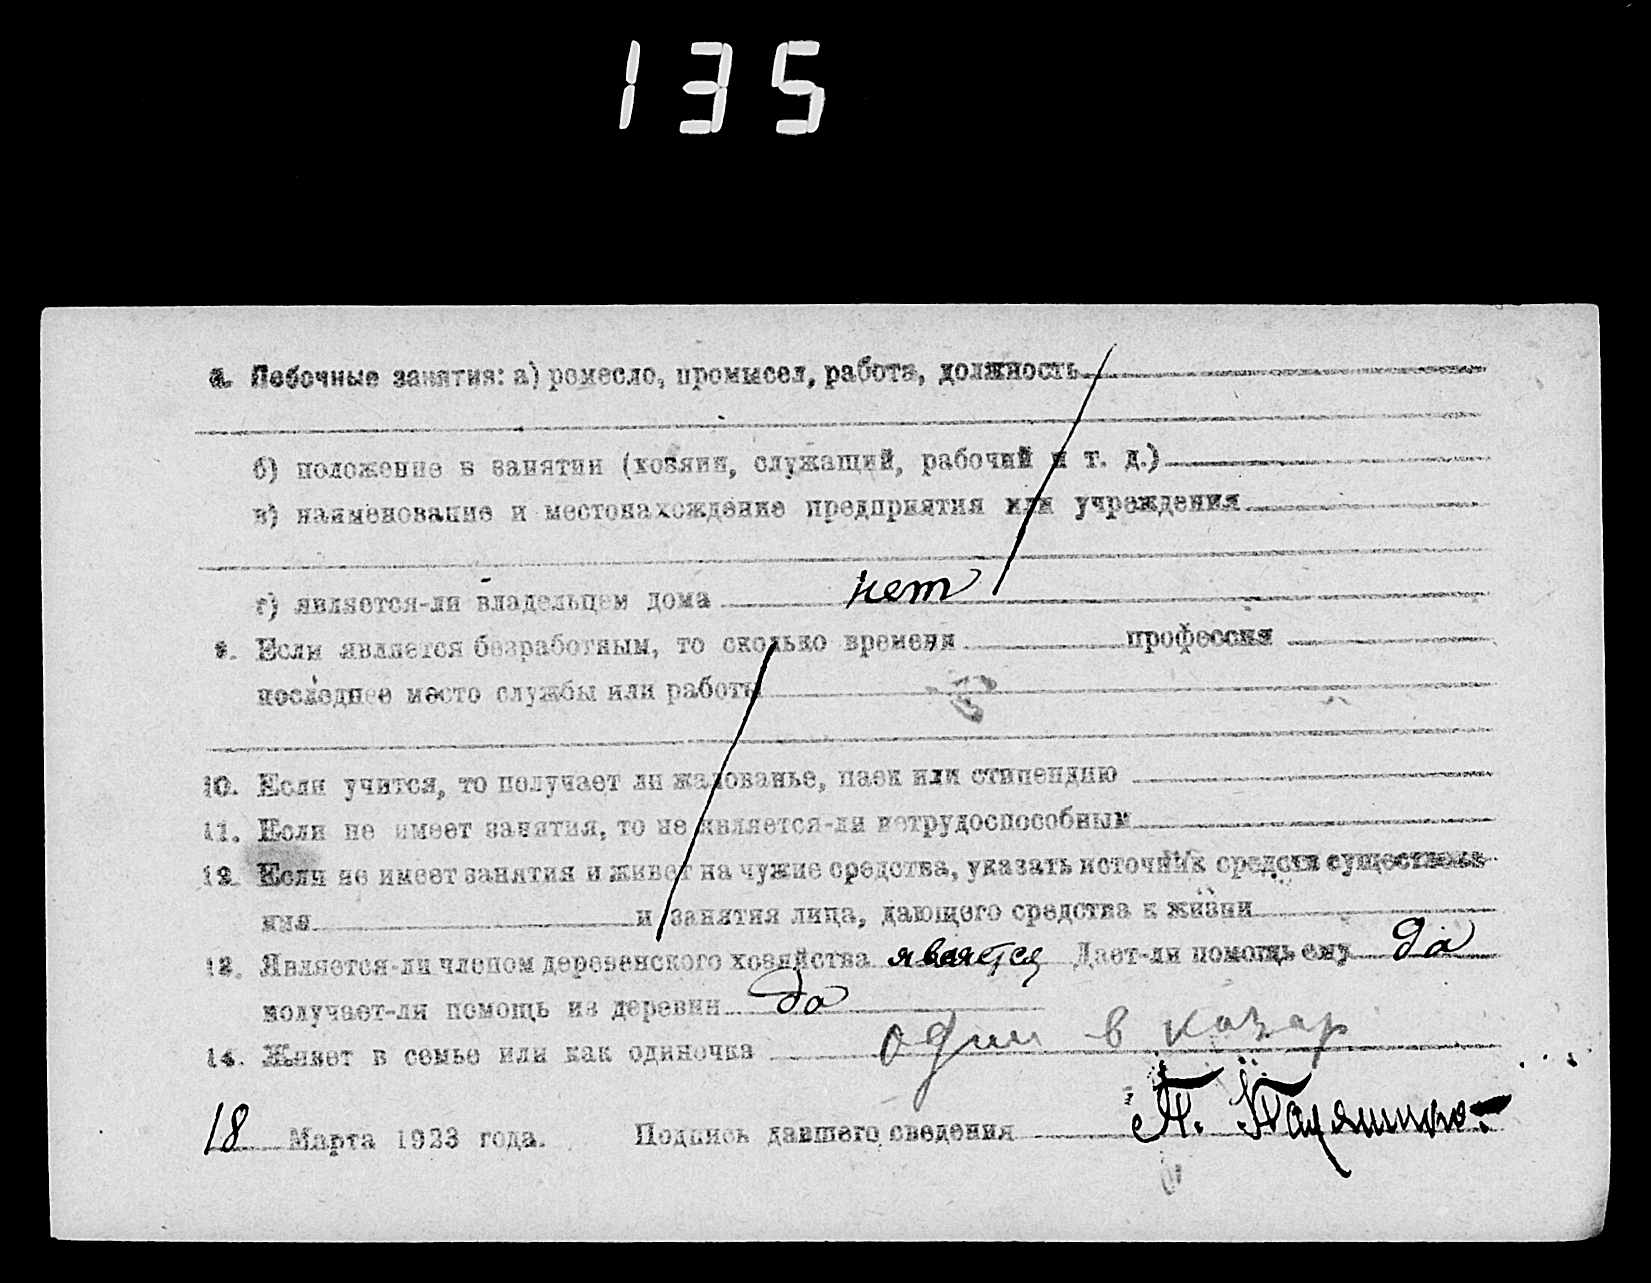 135
8. Побочные занятия: а) ремесло, промысел, работа, должность
б) положение в занятии (хозяин, служащий, рабочий и т. д.)
в) наименование и местонахождение предприятия или учреждения
г) является-ли владельцем дома нет
9. Если является безработным, то сколько времени профессия
последнее место службы или работы
10. Если учится, то получает ли жалованье, паек или стипендию
11. Если не имеет занятия, то не является-ли нетрудоспособным
12. Если не имеет занятия и живет на чужие средства, указать источник средств существова-
ния и занятия лица, дающего средства к жизни
13. Является-ли членом деревенского хозяйства является Дает-ли помощь ему да
получает-ли помощь из деревни да
14. Живет в семье или как одиночка один в казар
18 Марта 1923 года. Подпись давшего сведения